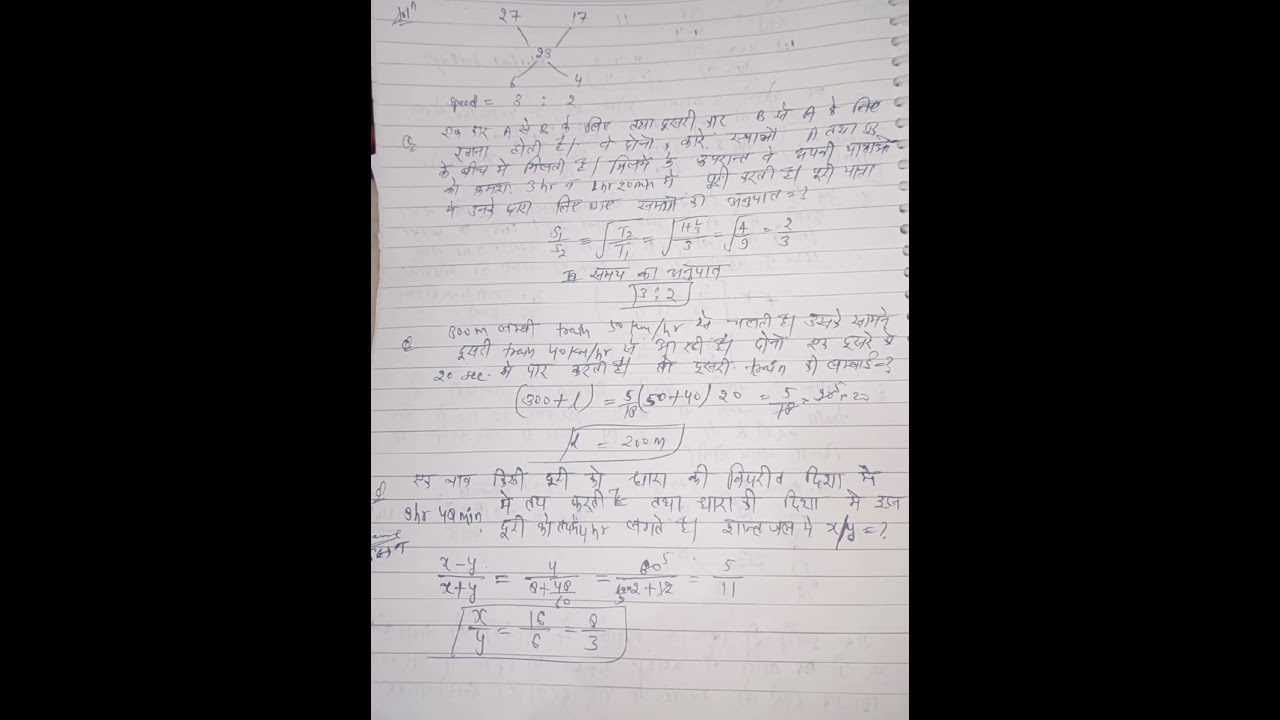 Solⁿ
27 17
23
6 4
speed = 3 : 2
Q एक कार A से B के लिए तथा दूसरी कार B से A के लिए
रवाना होती है। वे दोनो कारे स्थानों A तथा B
के बीच मे मिलती है। मिलने के उपरान्त वे अपनी यात्राओं
को क्रमश: 3hr व 1hr20min मे पूरी करती है। पूरी यात्रा
मे उनके द्वारा लिए गए समयो का अनुपात = ?
S₁/S₂ = √(T₂/T₁) = √((1+1/3)/3) = √(4/9) = 2/3
समय का अनुपात
3 : 2
Q 300m लम्बी train 50 km/hr से चलती है। उसके सामने
दूसरी train 40 km/hr से आ रही है। दोनो एक दूसरे को
20 sec मे पार करती है। तो दूसरी train की लम्बाई = ?
(300+l) = 5/18 (50+40) 20 = 5/18 × 90⁵ × 20
l = 200m
Q एक नाव किसी दूरी को धारा की विपरीत दिशा मे
8hr 48min मे तय करती है तथा धारा की दिशा मे उस
दूरी को 4hr लगते है। शान्त जल मे x/y = ?
(x-y)/(x+y) = 4/(8+48/60) = 5/11
x/y = 16/6 = 8/3